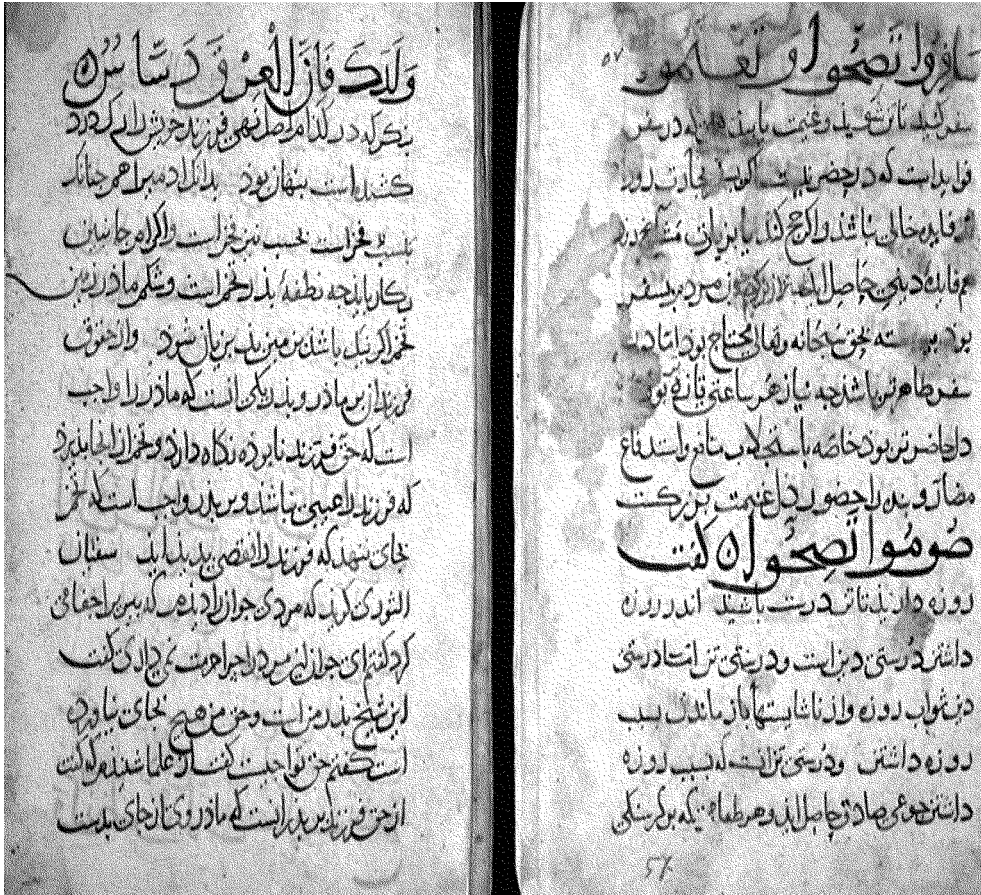 سافروا تصحوا و تغنموا ۵۷
سفر کنید تا تن شوید و غنیمت یابید که در سفر
فوایداست که در حضر نیست اگر بهر تجارت رود
از فایده خالی نباشد و اگر حج کند یا بزیارت مشاهد رود
هم فایدهٔ دینی حاصل اید مرد در سفر
بود پیوسته بحق سبحانه و تعالی محتاج بود اما در
سفر ظاهرتر باشد چه نیاز هر ساعتی تازه تر بود
دل حاضرتر بود خاصه باستجلاب منافع و استدفاع
مضار و بنده را حضور دل غنیمت بزرکست
صُومُوا تَصِحُّوا ه کفت
روزه دارید تا تن درست باشید اندر روزه
داشتن درستی دین است و درستی تن اما درستی
دین ثواب روزه و از ناشایستها باز ماندن بسبب
روزه داشتن و درستی تن انست که بسبب روزه
داشتن جوعی صادق حاصل اید و هر طعام که بر کرسنکی
57
وَلَدَكَ فَاِنَّ الْعِرْقَ دَسَّاسٌ ه
بنکر که در کدام اصل می نهی فرزند خویش را که درد
کشنده است پنهان بود بدانک ادمی را همچنانک
بنسب فخر است بحسب نیز فخر است و اکر از هر جانبین
در کار باید چه نطفهٔ پدر تخم است و شکم مادر زمین
تخم اکر نیک باشد زمین بد بزیان شود و از حقوق
فرزند بر مادر و پدر یکی انست که مادر را واجب
است که حق فرزند نابوده نکاه دارد و تخم از انجا پذیرد
که فرزند را عیبی نباشد و بر پدر واجب است که تخم
بجای ننهد که فرزند را نقصی پدید اید سفیان
الثوری کوید که مردی جوان را دیدم که پیر را جفا می
کرد کفتم ای جوان این مرد را چرا حرمت نمی داری کفت
این شیخ پدر من است و حق من هیچ بجای نیاورده
است کفتم حق تو چیست کفت از علما شنیدم که کفت
از حق فرزند بر پدر انست که مادر وی را از جای بدست